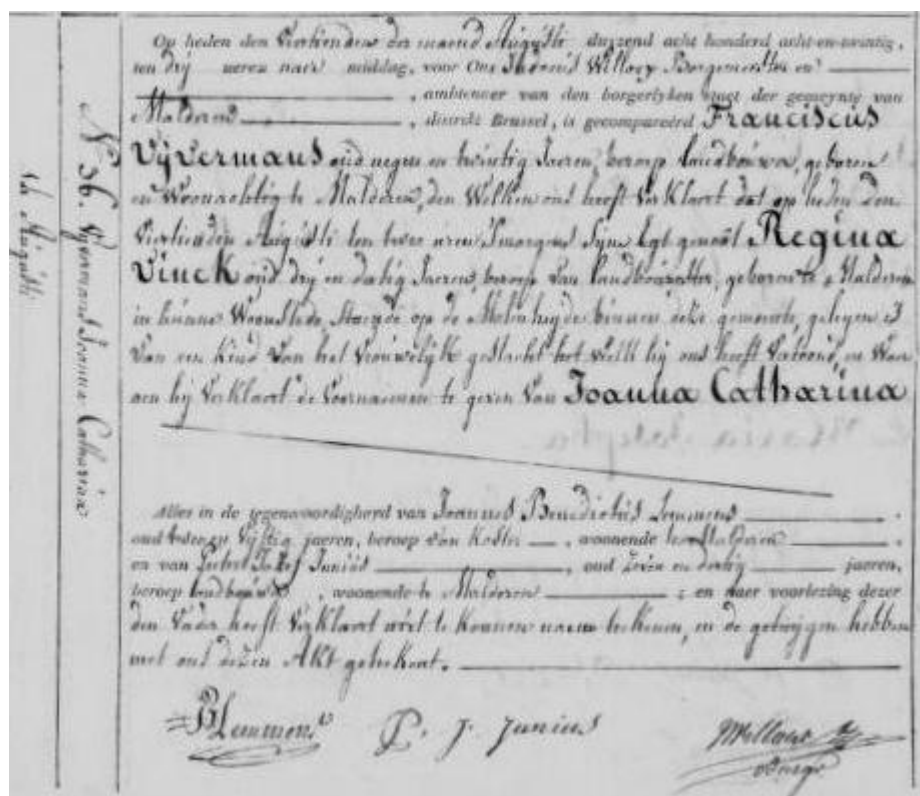 Op heden den Viertienden der maend Augusti duyzend acht honderd acht-en-twintig,
ten drij ueren naer middag, voor Ons Willocx Borgemeester en
, ambtenaer van den borgerlyken staet der gemeynte van
Malderen , district Brussel, is gecompareérd Franciscus
Vijvermans oud negen en twintig Jaeren, beroep landbouwer, geboren
en Woonachtig te Malderen, den Welken ons heeft Verklaert dat op heden den
Viertienden Augusti ten twee uren Smorgens Syne Egt genoot Regina
Vinck oud drij en dertig Jaeren, beroep van landbouwster, geboren te Malderen
in hunne Woonstede, Staende op de Molenheyde binnen deze gemeente, gelegen is
Van een Kind Van het Vrouwelijk geslacht het Welk hij ons heeft Vertoond, en Waer
aen hij Verklaert de Voornaemen te geven Van Joanna Catharina
Alles in de tegenwoordigherd van Joannes Benedictus Lemmens ,
oud Vyftig jaeren, beroep van Koster , woonende te Malderen
en van Peeter Josef Junius , oud Zeven en dertig jaeren,
beroep landbouwer , woonende te Malderen ; en naer voorlezing dezer
den Vader heeft Verklaert niet te konnen naem teekenen, en de getuygen hebben
met ons dezen Akt geteekent.
BLemmens
P. J. Junius
Willocx
Borgr
N 36. Vijvermans Joanna Catharina
14 Augusti